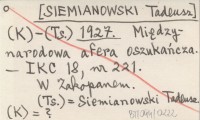 [SIEMIANOWSKI Tadeusz]
(K)-(Ts.) 1927. Między-
narodowa afera oszukańcza.
- IKC 18, nr 221.
W Zakopanem.
(Ts.) = Siemianowski Tadeusz
(K) = ?